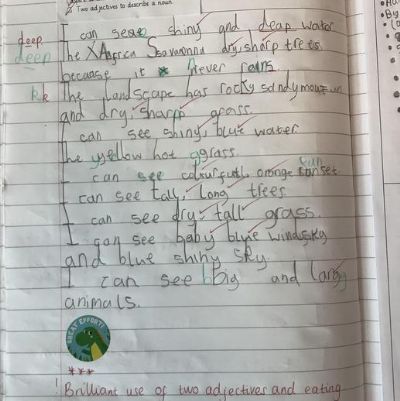 Two adjectives to describe a noun.
I can see shiny and deap water
deep
deep
The Africa Savannna dry, sharp trees.
because it never rains
The Landscape has rocky sandy
and dry, sharp grass.
I can see shiny, blue water
The yellow hot grass
I can see colourfull, orange sunset
I can see tall, long trees
I can see dry, tall grass.
I can see baby blue
and blue shiny sky
I can see big and large
animals.
GREAT EFFORT!
! Brilliant use of two adjectives and eating